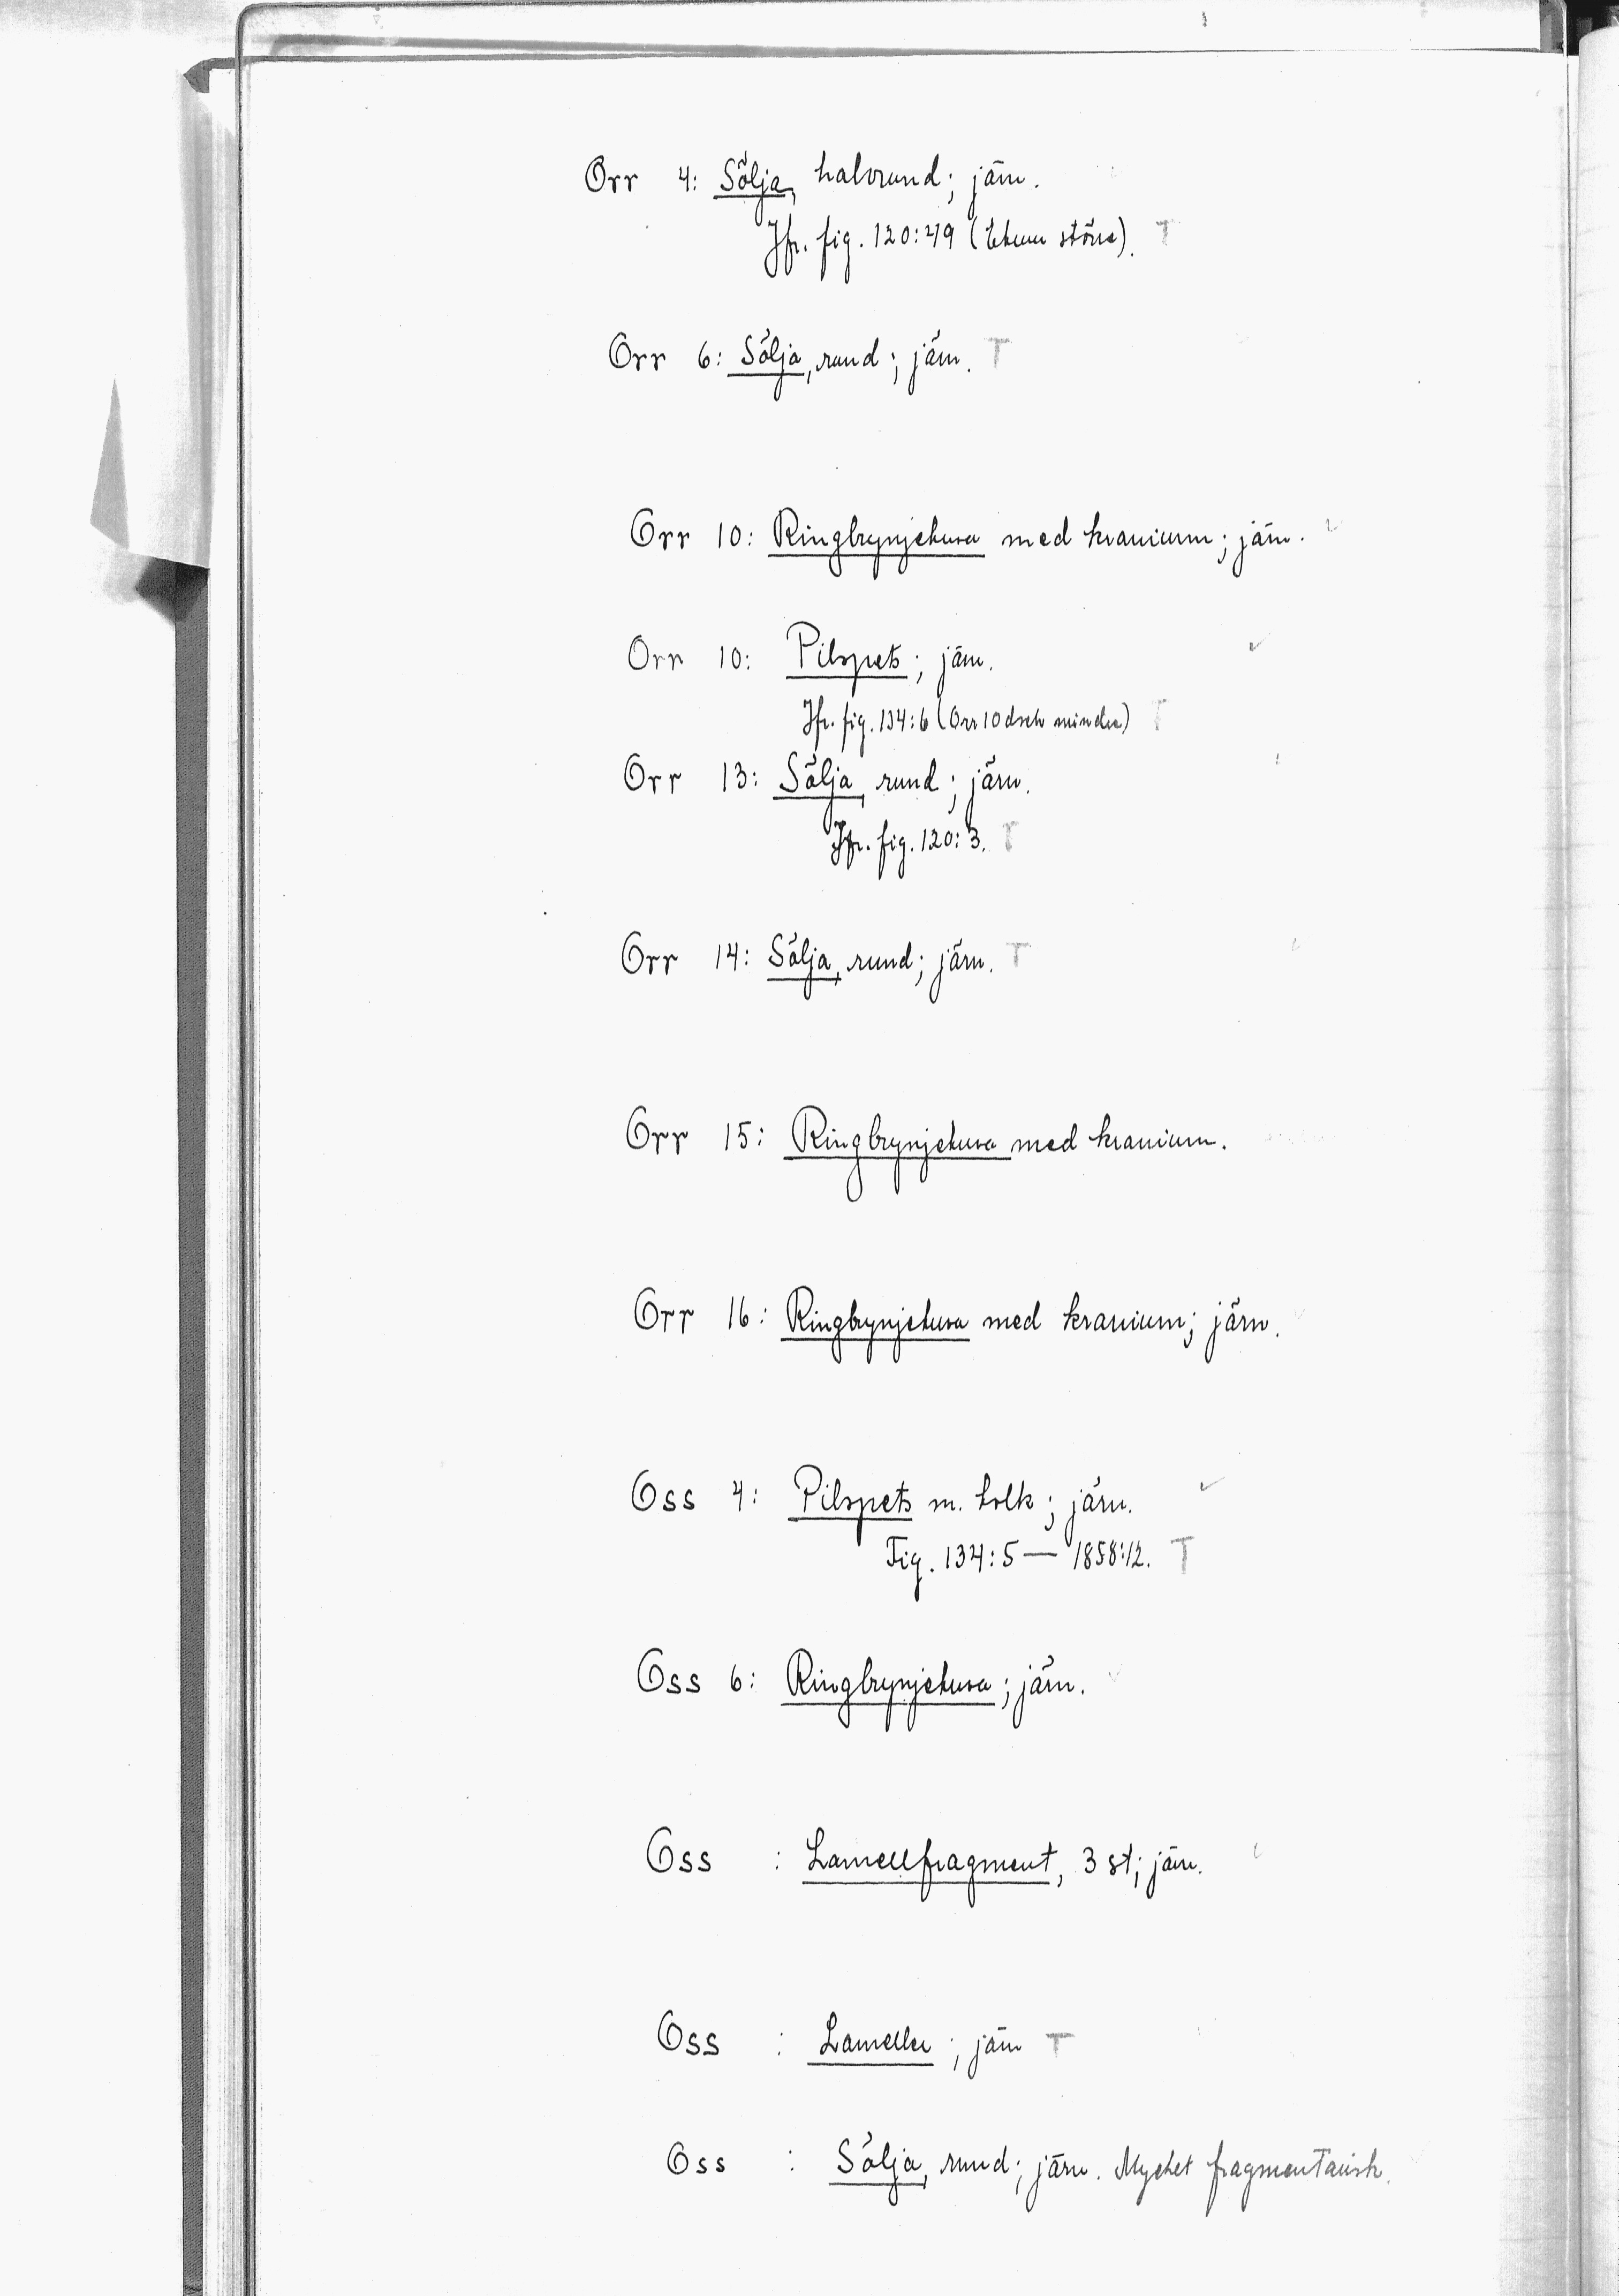 Orr 4: Sölja, halvrund; järn.
Jfr. fig. 120:49 ( större). T
Orr 6: Sölja, rund; järn. T
Orr 10: Ringbrynjehuva med kranium; järn.
Orr 10: Pilspets; järn. ✓
Jfr. fig. 134:6 (Orr 10 dock mindre) T
Orr 13: Sölja, rund; järn.
Jfr. fig. 120:3. T
Orr 14: Sölja, rund; järn. T
Orr 15: Ringbrynjehuva med kranium.
Orr 16: Ringbrynjehuva med kranium; järn.
Oss 4: Pilspets m. holk; järn. ✓
Fig. 134:5 — 1858:12. T
Oss 6: Ringbrynjehuva; järn.
Oss : Lamellfragment, 3 st; järn.
Oss : Lameller; järn T
Oss : Sölja, rund; järn. Mycket fragmentarisk.